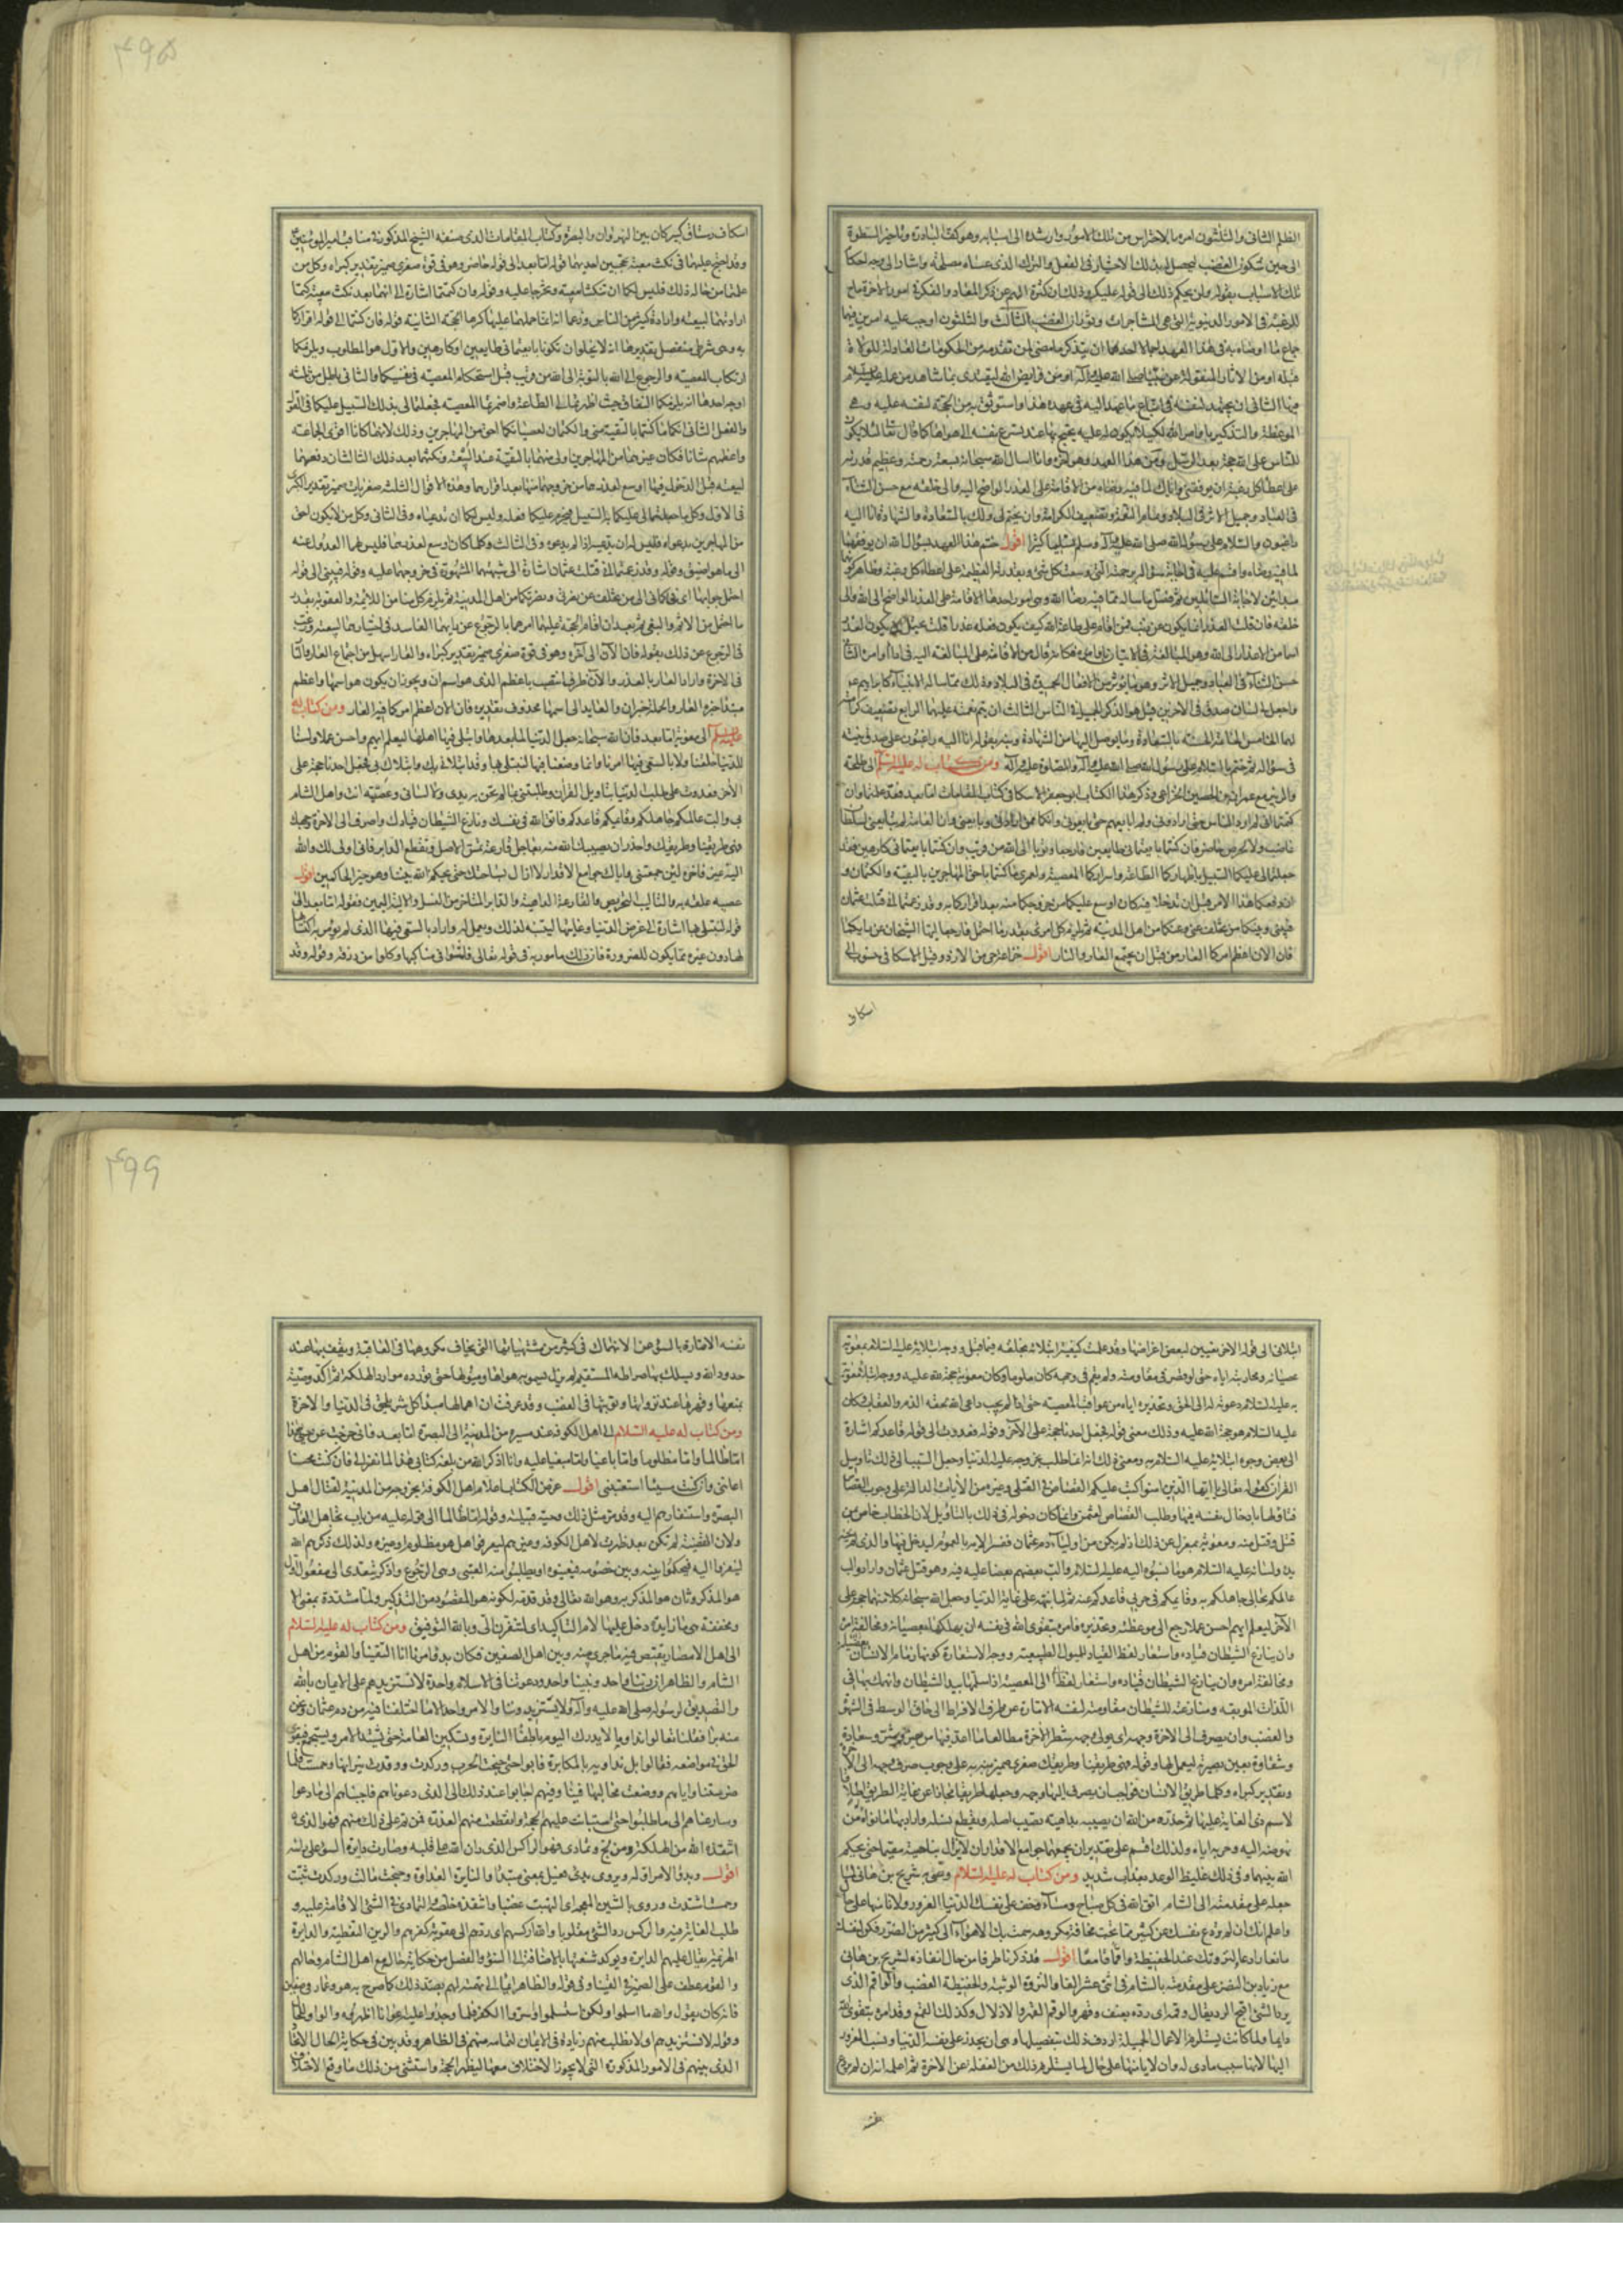 ۴۹۵
الظلم الثانى والثلثون امره بالاحتراس من تلك الامور وارشده الى اسبابه وهو كف البادرة وتاخير السطوة
الى حين سكون الغضب ليحصل له بذلك الاختيار فى الفعل والترك الذى عساه مصلحة واشار الى وجه احكام
تلك الاسباب بقوله ولن يحكم ذلك الى قوله عليك وذلك ان كثرة الهم عن ذكر المعاد والفكرة فى امور الاخرة ماح
للرغبة فى الامور الدنيوية التى هى المشاجرات وثوران الغضب الثالث والثلثون اوجب عليه امرين فيهما
جماع ما اوصاه به فى هذا العهد اجمالا احدهما ان يتذكر ما مضى لمن تقدمه من الحكومات العادلة للولاة
قبله او من الاثار المنقولة عن نبينا صلى الله عليه وآله او من فرايض الله ليقتدى بما شاهد من عمله عليه السلام
فيها الثانى ان يجتهد لنفسه فى اتباع ما عهد اليه فى عهده هذا واستوثق به من الحجة لنفسه عليه وهى
الموعظة والتذكير باوامر الله لكيلا يكون له عليه حجة يحتج بها عند تسرع نفسه الى هواها كما قال تعالى لئلا يكون
للناس على الله حجة بعد الرسل ومن هذا العهد وهو اخره وانا اسال الله سبحانه بسعة رحمته وعظيم قدرته
على اعطاء كل رغبة ان يوفقنى واياك لما فيه رضاه من الاقامة على العذر الواضح اليه والى خلقه مع حسن الثناء
فى العباد وجميل الاثر فى البلاد وتمام النعمة وتضعيف الكرامة وان يختم لى ولك بالسعادة والشهادة انا اليه
راغبون والسلام على رسول الله صلى الله عليه وآله وسلم تسليما كثيرا اقول ختم هذا العهد بسؤال الله ان يوفقهما
لما فيه رضاه واقسم عليه فى اجابة سؤاله برحمته التى وسعت كل شئ وبقدرته العظيمة على اعطاء كل رغبة وظاهر كونهما
مبدأين لاجابة السائلين ثم فصل ما ساله مما فيه رضا الله وهى امور احدها الاقامة على العذر الواضح الى الله والى
خلقه فان قلت العذر انما يكون عن ذنب فمن اقام على طاعة الله كيف يكون فعله عذرا قلت يحتمل ان يكون العذر
اسما من الاعذار الى الله وهو المبالغة فى الاتيان باوامره فكانه قال من الاقامة على المبالغة اليه فى اداء اوامره الثانى
حسن الثناء فى العباد وجميل الاثر وهو ما يوثر من الافعال الحميدة فى البلاد وذلك مما ساله الانبياء كابراهيم عم
واجعل لى لسان صدق فى الاخرين قيل هو الذكر الجميل فى الناس الثالث ان يتم نعمته عليهما الرابع تضعيف كرامته
لهما الخامس الخاتمة الحسنة بالسعادة وما يوصل اليها من الشهادة ونبه بقوله انا اليه راغبون على صدق نيته
فى سؤاله ثم ختم بالسلام على رسول الله صلى الله عليه وآله والصلوة عليه وآله ومن كتاب له عليه السلم الى طلحة
والزبير مع عمران بن الحصين الخزاعى وذكر هذا الكتاب ابو جعفر الاسكافى فى كتاب المقامات اما بعد فقد علمتما وان
كتمتما انى لم ارد الناس حتى ارادونى ولم ابايعهم حتى بايعونى وانكما ممن ارادنى وبايعنى وان العامة لم تبايعنى لسلطان
غاصب ولا لحرص حاضر فان كنتما بايعتمانى طايعين فارجعا وتوبا الى الله من قريب وان كنتما بايعتمانى كارهين فقد
جعلتما لى عليكما السبيل باظهاركما الطاعة واسراركما المعصية ولعمرى ما كنتما باحق المهاجرين بالتقية والكتمان و
ان دفعكما هذا الامر قبل ان تدخلا فيه كان اوسع عليكما من خروجكما منه بعد اقراركما به وقد زعمتما انى قتلت عثمان
فبينى وبينكما من تخلف عنى وعنكما من اهل المدينة ثم يلزم كل امرئ بقدر ما احتمل فارجعا ايها الشيخان عن رايكما
فان الان اعظم امركما العار من قبل ان يجتمع العار والنار اقول خزاعة حى من الازد وقيل الاسكافى منسوب الى
اسكاف
اسكاف رستاق كبير كان بين النهروان والبصرة وكتاب المقامات الذى صنفه الشيخ المذكور فى مناقب امير المومنين
وقد احتج عليهما فى نكث بيعته بحجتين احديهما قوله اما بعد الى قوله حاضر وهو فى قوة صغرى ضمير تقدير كبراه وكل من
علتما من حاله ذلك فليس لكما ان تنكثا بيعته وتخرجا عليه وقوله وان كتمتما اشارة الى انهما بعد نكث بيعته كتما
ارادتهما لبيعته وارادة كثير من الناس وزعما انه انما حملهما عليها كرها الحجة الثانية قوله فان كنتما الى قوله اقراركما
به وهى شرطى منفصل تقديرها انه لا يخلوان تكونا بايعتمانى طايعين او كارهين والاول هو المطلوب ويلزمكما
ارتكاب المعصية والرجوع الى الله بالتوبة الى الله من قريب قبل استحكام المعصية فى نفسيكما والثانى باطل من ثلثة
اوجه احدها انه يلزمكما النفاق حيث اظهرتما لى الطاعة واضمرتما المعصية فجعلتما لى بذلك السبيل عليكما فى القول
والفعل الثانى انكما ما كنتما بالتقية منى والكتمان لعصيانكما احق من المهاجرين وذلك لانهما كانا اقوى الجماعة
واعظمهم شانا فكان غيرهما من المهاجرين اولى منهما بالتقية عند البيعة ونكثهما بعد ذلك الثالث ان دفعهما
لبيعته قبل الدخول فيها اوسع لعذرهما من خروجهما منها بعد اقرارهما وهذه الاقوال الثلثة صغريات ضمير تقدير الكبرى
فى الاول وكل ما جعلتما لى عليكما به السبيل فيحرم عليكما فعله وليس لكما ان تدعياه وفى الثانى وكل من لا يكون احق
من المهاجرين بدعواه فليس له ان يدعيه اذا لم يدعوه وفى الثالث وكلما كان اوسع لعذرهما فليس لهما العدول عنه
الى ما هو اضيق وقوله وقد زعمتما انى قتلت عثمان اشارة الى شبهتهما المشهورة فى خروجهما عليه وقوله فبينى الى قوله
احتمل جوابها اى فى كافى الى من تخلف عن نصرتى ونصرتكما من اهل المدينة ثم يلزم كل منا من اللائمة والعقوبة بقدر
ما احتمل من الاثم والبغى ثم بعد ان اقام الحجة عليهما امرهما بالرجوع عن رايهما الفاسد فى اختيارهما لبيعته ورغب
فى الرجوع عن ذلك بقوله فان الآن الى اخره وهو فى قوة صغرى ضمير تقدير كبراه والعار اسهل من اجتماع العار والنار
فى الاخرة واراد العار بالعذر والآن ظرف انتصب باعظم الذى هو اسم ان ويجوز ان يكون هو اسمها واعظم
مبتدأ خبره العار والجملة خبر ان والعايد الى اسمها محذوف تقديره فان الان اعظم امركما فيه العار ومن كتاب له
عليه السلم الى معوية اما بعد فان الله سبحانه جعل الدنيا لما بعدها وابتلى فيها اهلها ليعلم ايهم احسن عملا ولسنا
للدنيا خلقنا ولا بالسعى فيها امرنا وانما وضعنا فيها لنبتلى بها وقد ابتلانى بك وابتلاك بى فجعل احدنا حجة على
الاخر فعدوت على طلب الدنيا بتاويل القرآن وطلبتنى بما لم تجن يدى ولا لسانى وعصبته انت واهل الشام
بى والب عالمكم جاهلكم وقائمكم قاعدكم فاتق الله فى نفسك ونازع الشيطان قيادك واصرف الى الاخرة وجهك
فهى طريقنا وطريقك واحذر ان يصيبك الله منه بعاجل قارعة تمس الاصل وتقطع الدابر فانى اولى لك بالله
الية غير فاجرة لئن جمعتنى واياك جوامع الاقدار لا ازال بساحتك حتى يحكم الله بيننا وهو خير الحاكمين اقول
عصبه علقه به والتاليب التحريص والقارعة الداهية والدابر المتاخر من النسل والالية اليمين فقوله اما بعد الى
قوله لنبتلى بها اشارة الى غرض الدنيا وغايتها لينبه لذلك ويعمل له واراد بالسعى فيها الذى لم يؤمر به اكتسابا
لها دون غيره مما يكون للضرورة فان ذلك مامور به فى قوله تعالى فامشوا فى مناكبها وكلوا من رزقه وقوله وقد
۴۹۶
ابتلانى الى قوله الاخر تعيين لبعض اغراضها وقد علمت كيفية ابتلائه بخلقه فيما قبل ووجه ابتلائه عليه السلام بمعوية
عصيانه ومحاربته اياه حتى لو قصر فى مقاومته ولم يقم فى وجهه كان ملوما وكان معوية حجة الله عليه ووجه ابتلاء معوية
به عليه السلام دعوته له الى الحق وتحذيره اياه من عواقب المعصية حتى اذا لم يجب داعى الله لحقه الذم والعقاب فكان
عليه السلام هو حجة الله عليه وذلك معنى قوله فجعل احدنا حجة على الآخر وقوله فعدوت الى قوله قاعدكم اشارة
الى بعض وجوه ابتلائه عليه السلام به ومعنى ذلك انه انما طلب بخروجه عليه الدنيا وجعل السبب الى ذلك تاويل
القرآن كقوله تعالى يا ايها الذين امنوا كتب عليكم القصاص فى القتلى وغيره من الآيات الدالة على وجوب القصاص
فتاولها بادخال نفسه فيها وطلب القصاص لعثمن وانما كان دخوله فى ذلك بالتاويل لان الخطاب خاص بمن
قتل وقتل منه ومعوية بمعزل عن ذلك اذ لم يكن من اولياء دم عثمان ففسر الاية بالعموم ليدخل فيها والذى لم تجنه
يده ولسانه عليه السلام هو ما نسبوه اليه عليه السلام والب بعضهم بعضا عليه فيه وهو قتل عثمان واراد والب
عالمكم بحالى جاهلكم به وقائمكم فى حربى قاعدكم عنه ثم لما نبهه على غاية الدنيا وجعل الله سبحانه كلا منهما حجة على
الآخر ليعلم ايهم احسن عملا رجع الى موعظته وتحذيره فامره بتقوى الله فى نفسه ان يهلكها بعصيانه ومخالفة امره
وان ينازع الشيطان قياده واستعار لفظ القياد للميول الطبيعية ووجه الاستعارة كونها زمام الانسان الى المعصية
ومخالفة امره وان ينازع الشيطان قياده واستعار لفظ الى المعصية اذا سلمها بيد الشيطان وانهمك بها فى
اللذات الموبقه ومنازعته للشيطان مقاومته لنفسه الامارة عن طرف الافراط الى حاق الوسط فى الشهوة
والغضب وان يصرف الى الاخرة وجهه اى يولى وجهه شطر الآخرة مطالعا ما اعد فيها من خير وشر وسعادة
وشقاوة بعين بصيرة ليعمل لها وقوله فهى طريقنا وطريقك صغرى ضمير نبه به على وجوب صرف وجهه الى الآخرة
وتقدير كبراه وكلما طريق الانسان فواجب ان يصرف اليها وجهه وجعلها طريقا مجازا عن غاية الطريق اطلاقا
لاسم ذى الغاية عليها ثم حذره من الله ان يصيبه بداهية تصيب اصله وتقطع نسله واراد بها ما نواه من
نهوضه اليه وحربه اياه ولذلك اقسم على تقدير ان يجمعهما جوامع الاقدار ان لا يزال بساحته مقيما حتى يحكم
الله بينهما وفى ذلك غليظ الوعيد بعذاب شديد ومن كتاب له عليه السلام وصى به شريح بن هانى لما
جعله على مقدمته الى الشام اتق الله فى كل صباح ومساء وخف على نفسك الدنيا الغرور ولا تامنها على حال
واعلم انك ان لم تردع نفسك عن كثير مما تحب مخافة مكروهه سمت بك الاهواء الى كثير من الضرر فكن لنفسك
مانعا رادعا ولنزوتك عند الحفيظة واقما قامعا اقول قد ذكرنا طرفا من حال انفاذه لشريح بن هانى
مع زياد بن النضر على مقدمته بالشام فى اثنى عشر الفا والنزوة الوثبة والحفيظة الغضب والواقم الذى
يرد الشئ اقبح الرد يقال وقمه اى رده بعنف وقهر والوقم القهر والاذلال وكذلك القمع وقد امره بتقوى الله
دايما ولما كانت يستلزم الاعمال الجميلة اردف ذلك بتفصيلها وهى ان يحذر على نفسه الدنيا ونسب الغرور
اليها لانها سبب مادى له وان لا يامنها على حال لما يستلزم ذلك من الغفلة عن الاخرة ثم اعلمه انه ان لم يردع
نفسه
نفسه الامارة بالسوء عن الانهماك فى كثير من مشتهياتها التى يخاف مكروهها فى العاقبة ويقف بها عند
حدود الله ويسلك بها صراطه المستقيم لم يزل يسمو به هواها وميولها حتى تورده موارد الهلكة ثم اكد وصيته
بمنعها وقهرها عند نزواتها وتوثبها فى الغضب وقد عرفت ان اهمالها مبدأ كل شر يلحق فى الدنيا والاخرة
ومن كتاب له عليه السلام الى اهل الكوفة عند مسيره من المدينة الى البصرة اما بعد فانى خرجت عن حيى هذا
اما ظالما واما مظلوما واما باغيا واما مبغيا عليه وانا اذكر الله من بلغه كتابى هذا لما نفر الى فان كنت محسنا
اعاننى وان كنت مسيئا استعتبنى اقول غرض الكتاب اعلام اهل الكوفة بخروجه من المدينة لقتال اهل
البصرة واستنفارهم اليه وقد مر مثل ذلك وحيه قبيلته وقوله اما ظالما الى قوله عليه من باب تجاهل العارف
ولان القضية لم تكن بعد ظهرت لاهل الكوفة وغيرهم ليعرفوا هل هو مظلوم او غيره ولذلك ذكرهم الله
لينفروا اليه فيحكموا بينه وبين خصومه فيعينوه او يطلبوا منه العتبى وهى الرجوع واذكر يتعدى الى مفعولين الاول
هو المذكر وثان هو المذكر به وهو الله تعالى وقد قدمه لكونه هو المقصود من التذكير ولما مشددة بمعنى الا
ومخففة هى ما زايدة دخل عليها لام التاكيد اى لتنفرن الى وبالله التوفيق ومن كتاب له عليه السلام
الى اهل الامصار يقتص فيه ما جرى بينه وبين اهل الصفين فكان بدو امرنا انا التقينا والقوم من اهل
الشام والظاهر ان ربنا واحد ونبينا واحد ودعوتنا فى الاسلام واحدة لا نستزيدهم على الايمان بالله
والتصديق لرسوله صلى الله عليه وآله ولا يستزيدوننا والامر واحد الا ما اختلفنا فيه من دم عثمان ونحن
منه براء فقلنا تعالوا نداوى ما لا يدرك اليوم باطفاء النايرة وتسكين العامة حتى يشتد الامر ويستجمع فنقوى
الحق فى مواضعه فقالوا بل نداويه بالمكابرة فابوا حتى جنحت الحرب وركدت ووقدت نيرانها وحمست فلما
ضرستنا واياهم ووضعت مخالبها فينا وفيهم اجابوا عند ذلك الى الذى دعوناهم فاجبناهم الى ما دعوا
وسارعناهم الى ما طلبوا حتى استبانت عليهم الحجة وانقطعت منهم المعذرة فمن تم على ذلك منهم فهو الذى
انقذه الله من الهلكة ومن لج وتمادى فهو الراكس الذى ران الله على قلبه وصارت دايرة السوء على راسه
اقول وبدؤ الامر اوله ويروى بدى فعيل بمعنى مبتدأ والنايرة العداوة وجنحت مالت وركدت ثبتت
وحمست اشتدت وروى بالشين المعجمة اى التهبت غضبا وانقذه خلصه والتمادى فى الشئ الاقامة عليه و
طلب الغاية فيه والركس رد الشئ مقلوبا والله اركسهم اى ردهم الى عقوبة كفرهم والرين التغطية والدايرة
الهزيمة يقال عليهم الدايرة ويوكد شنعتها بالاضافة الى السوء والفصل من حكاية حاله مع اهل الشام وحالهم
والقوم عطف على الضمير فى التقينا وفى قوله والظاهر ايماء الى تهمته لهم بضد ذلك كما صرح به هو وعمار فى صفين
فانه كان يقول والله ما اسلموا ولكن استسلموا واسروا الكفر فلما وجدوا عليه اعوانا اظهروه والواو للحال
وقوله لا نستزيدهم اى لا نطلب منهم زيادة فى الايمان لتمامه منهم فى الظاهر وقد بين فى حكاية الحال الاتفاق
الذى بينهم فى الامور المذكورة التى لا يجوز الاختلاف معها ليظهر الحجة واستثنى من ذلك ما وقع الاختلاف